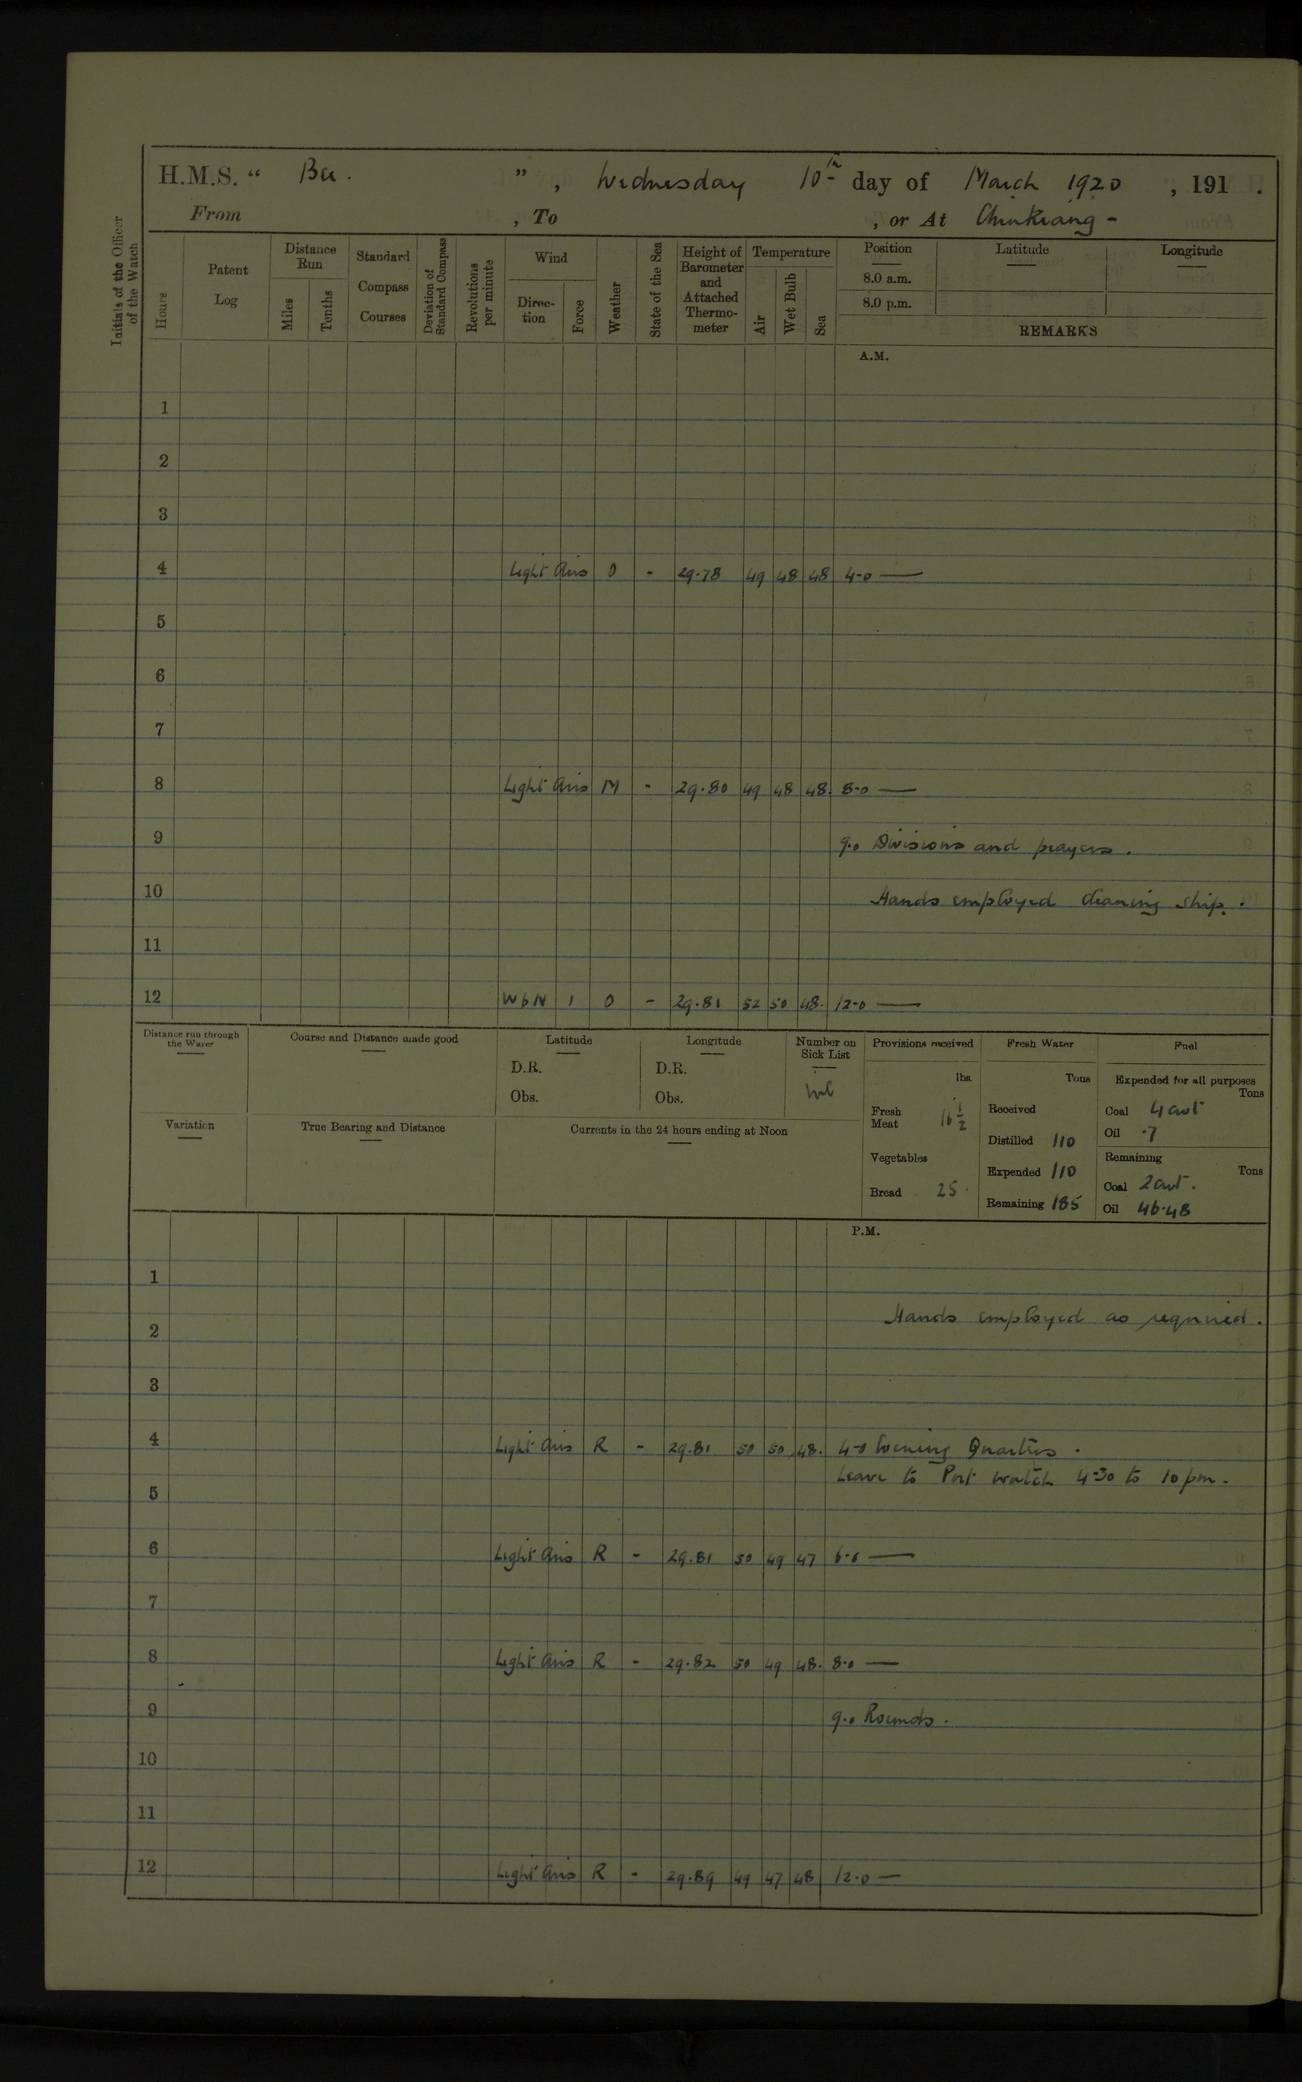 H.M.S. “ Bee. ” , Wednesday 10th day of March 1920 , 191 .
From , To , or At Chinkiang -
Initials of the Officer of the Watch
Hours
Patent Log
Distance Run
Miles
Tenths
Standard Compass Courses
Deviation of Standard Compass
Revolutions per minute
Wind
Direc-tion
Force
Weather
State of the Sea
Height of Barometer and Attached Thermo-meter
Temperature
Air
Wet Bulb
Sea
Position
8.0 a.m.
8.0 p.m.
Latitude
Longitude
REMARKS
A.M.
1
2
3
4 Light airs O - 29.78 49 48 48 4-0 —
5
6
7
8 Light airs M - 29.80 49 48 48. 8-0 —
9 9.0 Divisions and prayers.
10 Hands employed cleaning ship.
11
12 WbN 1 O - 29.81 52 50 48. 12-0 —
Distance run through the Water
Course and Distance made good
Latitude
D.R.
Obs.
Longitude
D.R.
Obs.
Number on Sick List
nil
Provisions received
lbs.
Fresh Meat 16 1/2
Vegetables
Bread 25.
Fresh Water
Tons
Received
Distilled 110
Expended 110
Remaining 185
Fuel
Expended for all purposes
Tons
Coal 4 cwt
Oil .7
Remaining
Tons
Coal 2 cwt.
Oil 46.48
Variation
True Bearing and Distance
Currents in the 24 hours ending at Noon
P.M.
1
Hands employed as required.
2
3
4 Light airs R - 29.81 50 50 48. 4-0 Evening Quarters.
Leave to Port watch 4-30 to 10 pm.
5
6 Light airs R - 29.81 50 49 47 6.0 —
7
8 Light airs R - 29.82 50 49 48. 8.0 —
9 9.0 Rounds.
10
11
12 Light airs R - 29.89 49 47 48 12.0 —